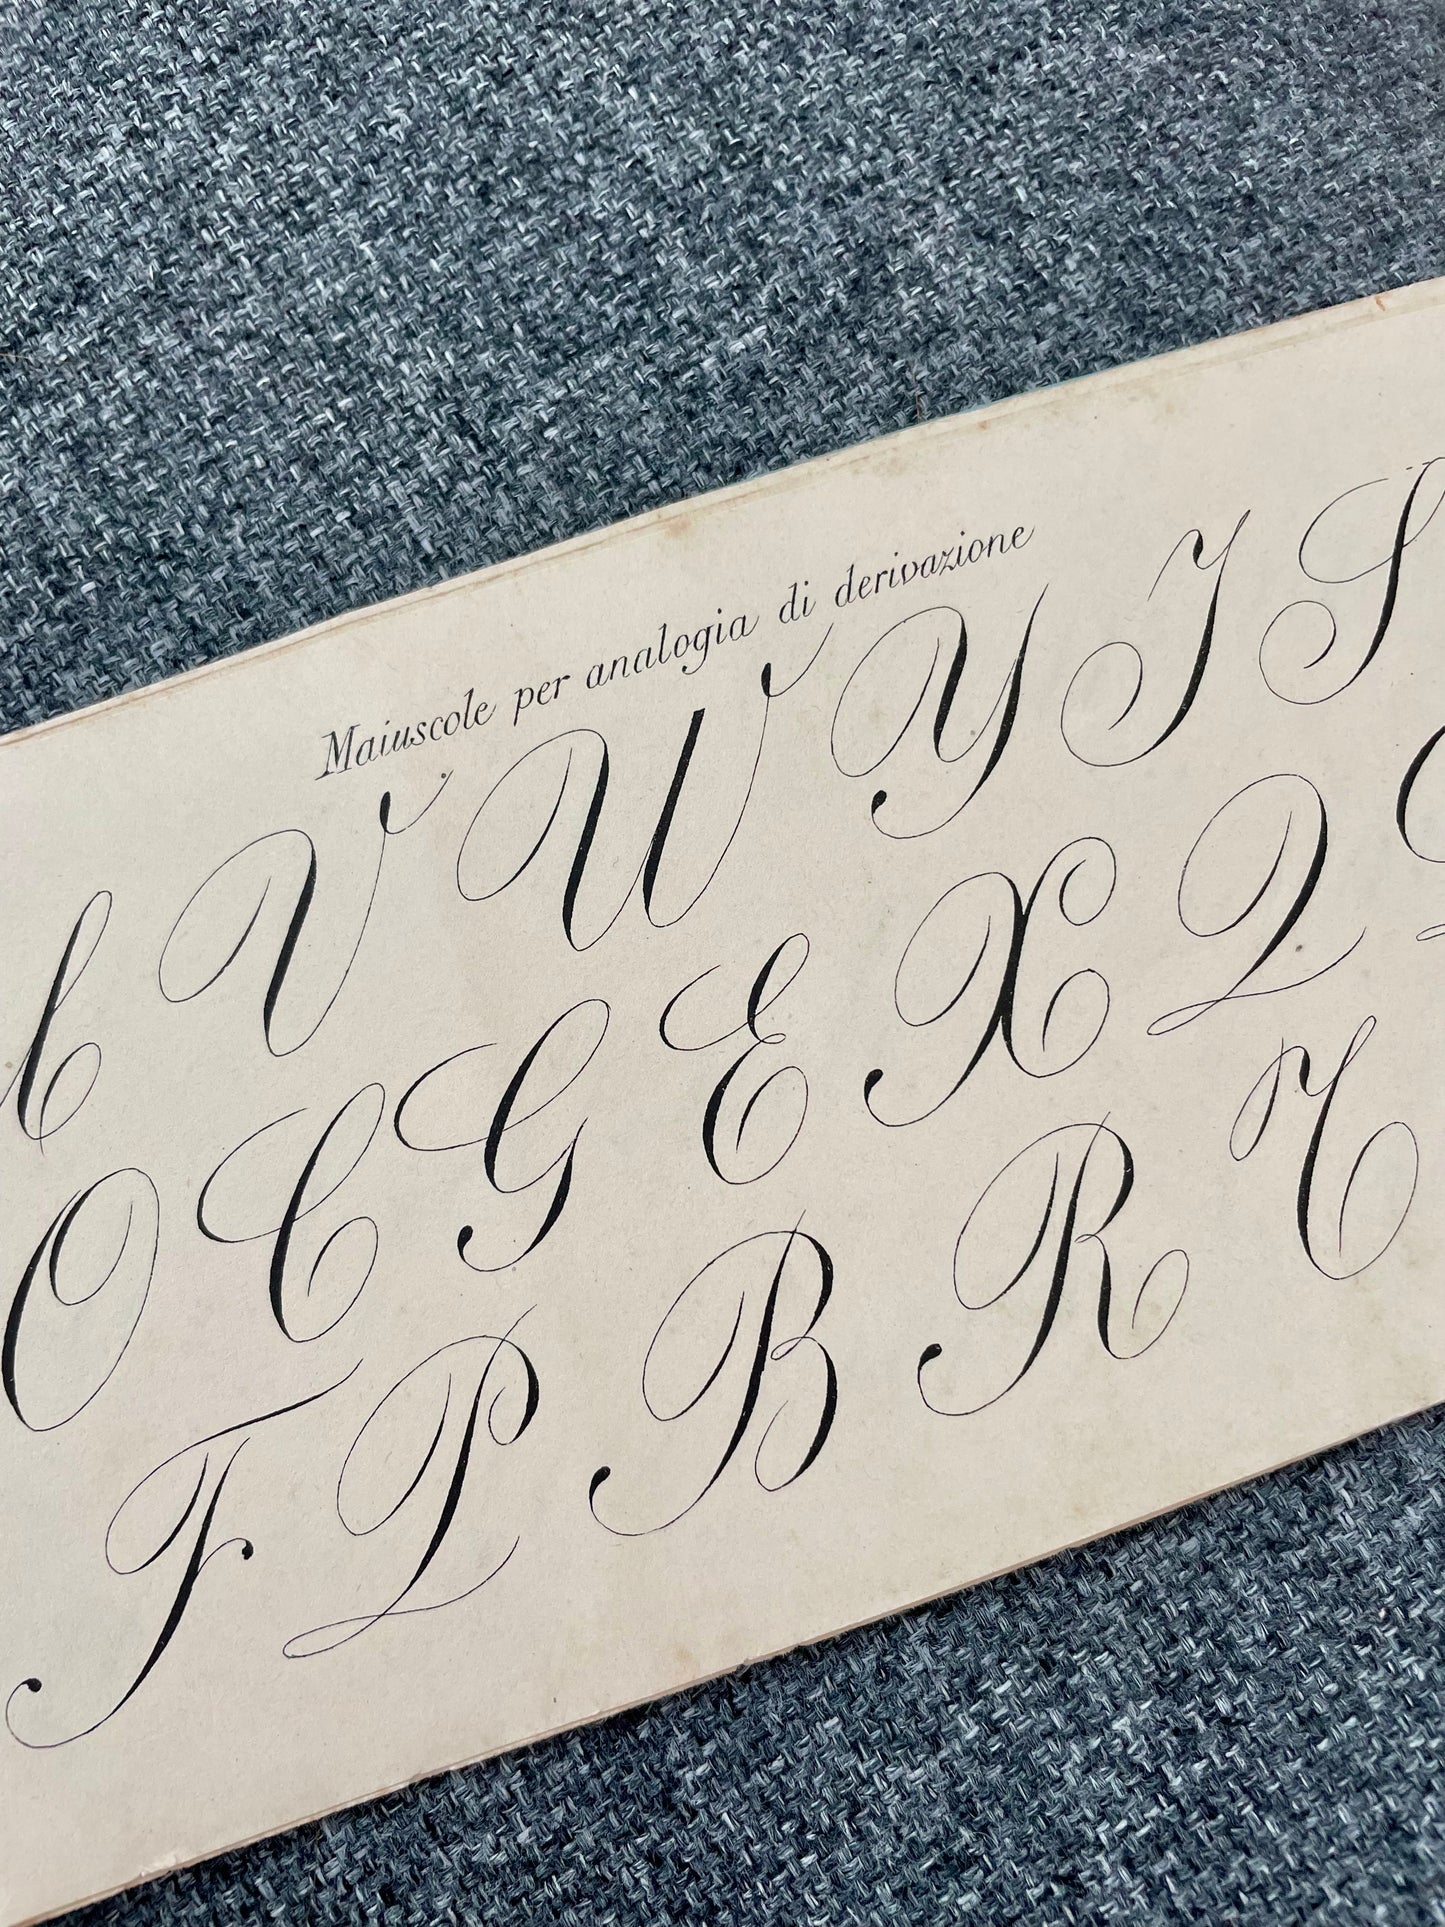 Maiuscole per analogia di derivazione
V W Y I S
O C G E X Q
F P B R T